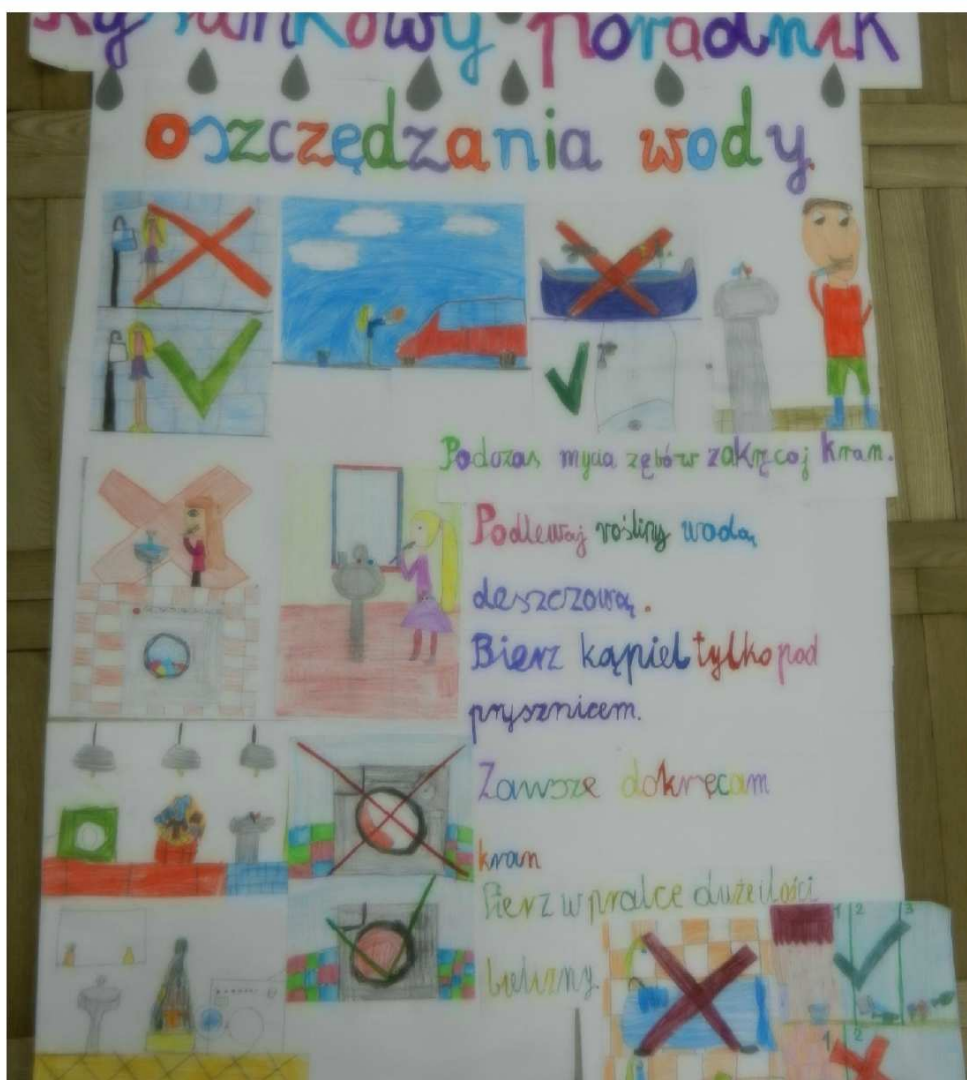 Rysunkowy poradnik
oszczędzania wody.
Podczas mycia zębów zakręcaj kran.
Podlewaj rośliny wodą
deszczową.
Bierz kąpiel tylko pod
prysznicem.
Zawsze dokręcam
kran
Pierz w pralce duże ilości
bielizny.
1 2 3
1 2